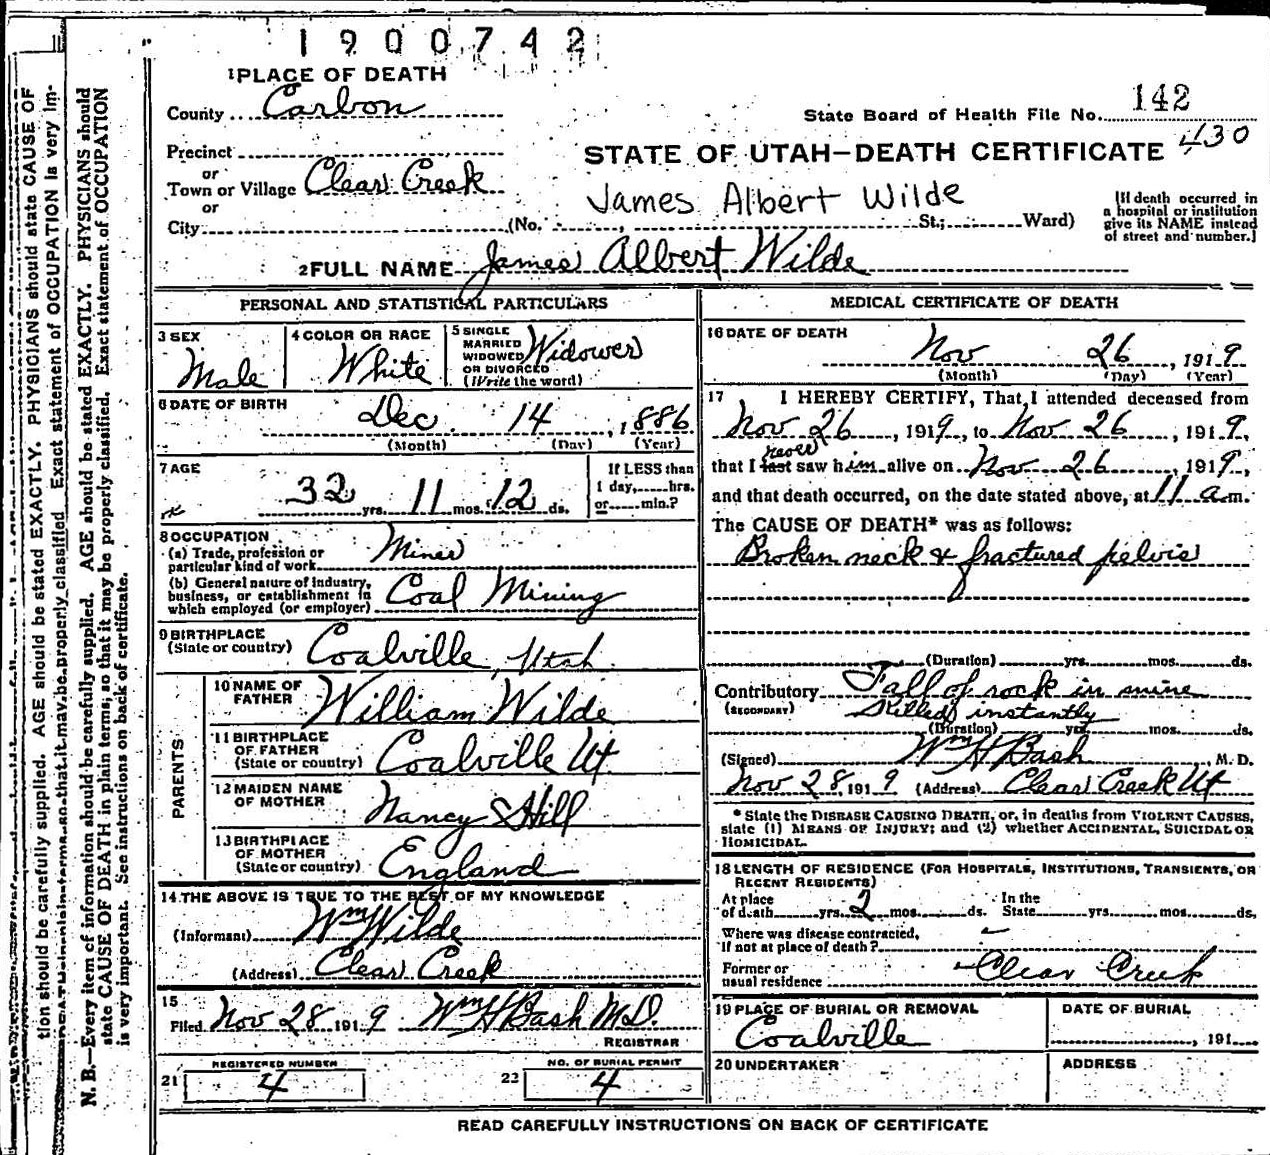 1900742
tion should be carefully supplied. AGE should be stated EXACTLY. PHYSICIANS should state CAUSE OF
N. B.—Every item of information should be carefully supplied. AGE should be stated EXACTLY. PHYSICIANS should
state CAUSE OF DEATH in plain terms, so that it may be properly classified. Exact statement of OCCUPATION
is very important. See instructions on back of certificate.
1 PLACE OF DEATH
County Carbon
State Board of Health File No. 142
430
Precinct
or
Town or Village Clear Creek
or
City (No. St.; Ward)
STATE OF UTAH—DEATH CERTIFICATE
James Albert Wilde
[If death occurred in
a hospital or institution
give its NAME instead
of street and number.]
2 FULL NAME James Albert Wilde
PERSONAL AND STATISTICAL PARTICULARS
3 SEX
Male
4 COLOR OR RACE
White
5 SINGLE
MARRIED
WIDOWED
OR DIVORCED
(Write the word)
Widower
6 DATE OF BIRTH
Dec. 14, 1886
(Month) (Day) (Year)
7 AGE
32 yrs. 11 mos. 12 ds.
If LESS than
1 day, hrs.
or min.?
8 OCCUPATION
(a) Trade, profession or
particular kind of work Miner
(b) General nature of industry,
business, or establishment in
which employed (or employer) Coal Mining
9 BIRTHPLACE
(State or country) Coalville, Utah
PARENTS
10 NAME OF
FATHER William Wilde
11 BIRTHPLACE
OF FATHER
(State or country) Coalville Ut
12 MAIDEN NAME
OF MOTHER Nancy Hill
13 BIRTHPLACE
OF MOTHER
(State or country) England
14 THE ABOVE IS TRUE TO THE BEST OF MY KNOWLEDGE
(Informant) Wm Wilde
(Address) Clear Creek
15
Filed Nov 28 1919 Wm H Bash M.D.
REGISTRAR
21 REGISTERED NUMBER
4
22 NO. OF BURIAL PERMIT
4
MEDICAL CERTIFICATE OF DEATH
16 DATE OF DEATH
Nov 26, 1919
(Month) (Day) (Year)
17 I HEREBY CERTIFY, That I attended deceased from
Nov 26, 1919, to Nov 26, 1919,
never
that I last saw him alive on Nov 26, 1919,
and that death occurred, on the date stated above, at 11 a m.
The CAUSE OF DEATH* was as follows:
Broken neck & fractured pelvis
(Duration) yrs. mos. ds.
Contributory Fall of rock in mine
(SECONDARY) Killed instantly
(Duration) yrs. mos. ds.
(Signed) Wm H Bash, M. D.
Nov 28, 1919 (Address) Clear Creek Ut
* State the DISEASE CAUSING DEATH, or, in deaths from VIOLENT CAUSES,
state (1) MEANS OF INJURY; and (2) whether ACCIDENTAL, SUICIDAL OR
HOMICIDAL.
18 LENGTH OF RESIDENCE (FOR HOSPITALS, INSTITUTIONS, TRANSIENTS, OR
RECENT RESIDENTS)
At place
of death yrs. 2 mos. ds. In the
State yrs. mos. ds.
Where was disease contracted,
If not at place of death?
Former or
usual residence Clear Creek
19 PLACE OF BURIAL OR REMOVAL
Coalville
DATE OF BURIAL
, 191
20 UNDERTAKER
ADDRESS
READ CAREFULLY INSTRUCTIONS ON BACK OF CERTIFICATE